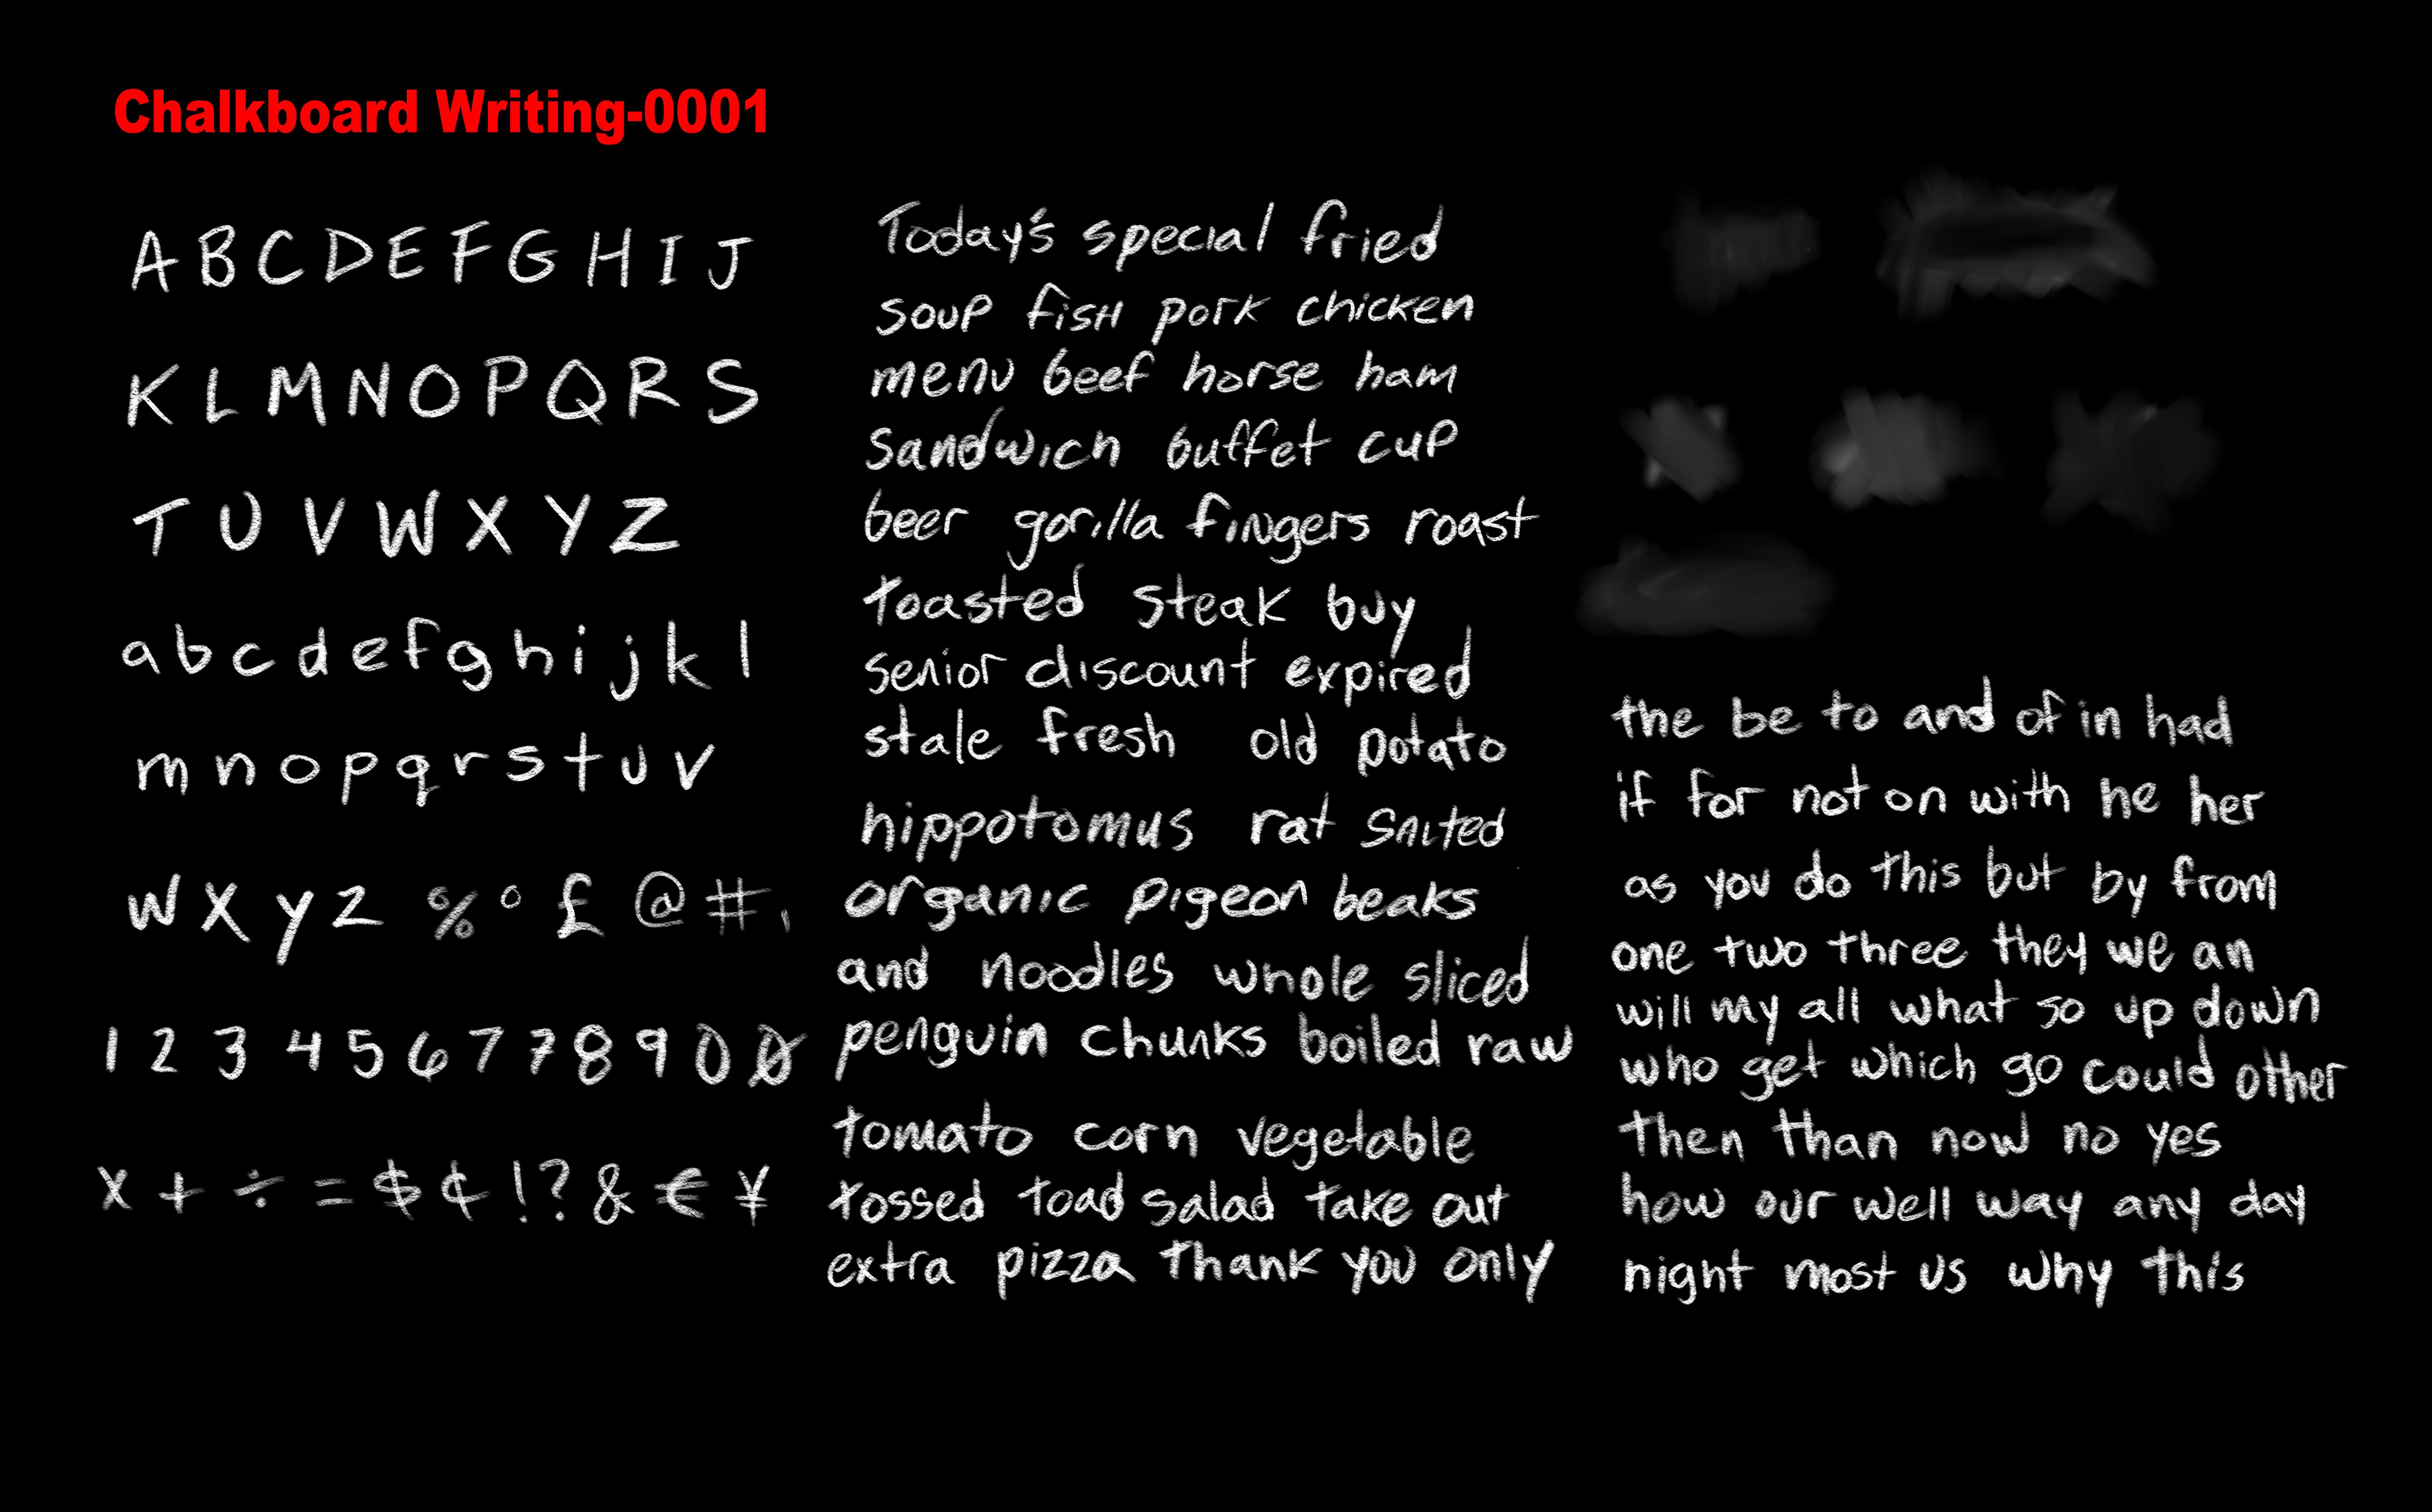 Chalkboard Writing-0001
A B C D E F G H I J
K L M N O P Q R S
T U V W X Y Z
a b c d e f g h i j k l
m n o p q r s t u v
w x y z % ° £ @ # ,
1 2 3 4 5 6 7 7 8 9 0 0
x + ÷ = $ ¢ ! ? & € ¥
Today's special fried
soup fish pork chicken
menu beef horse ham
sandwich buffet cup
beer gorilla fingers roast
toasted steak buy
senior discount expired
stale fresh old potato
hippotomus rat salted
organic pigeon beaks
and noodles whole sliced
penguin chunks boiled raw
tomato corn vegetable
tossed toad salad take out
extra pizza thank you only
the be to and of in had
if for not on with he her
as you do this but by from
one two three they we an
will my all what so up down
who get which go could other
then than now no yes
how our well way any day
night most us why this